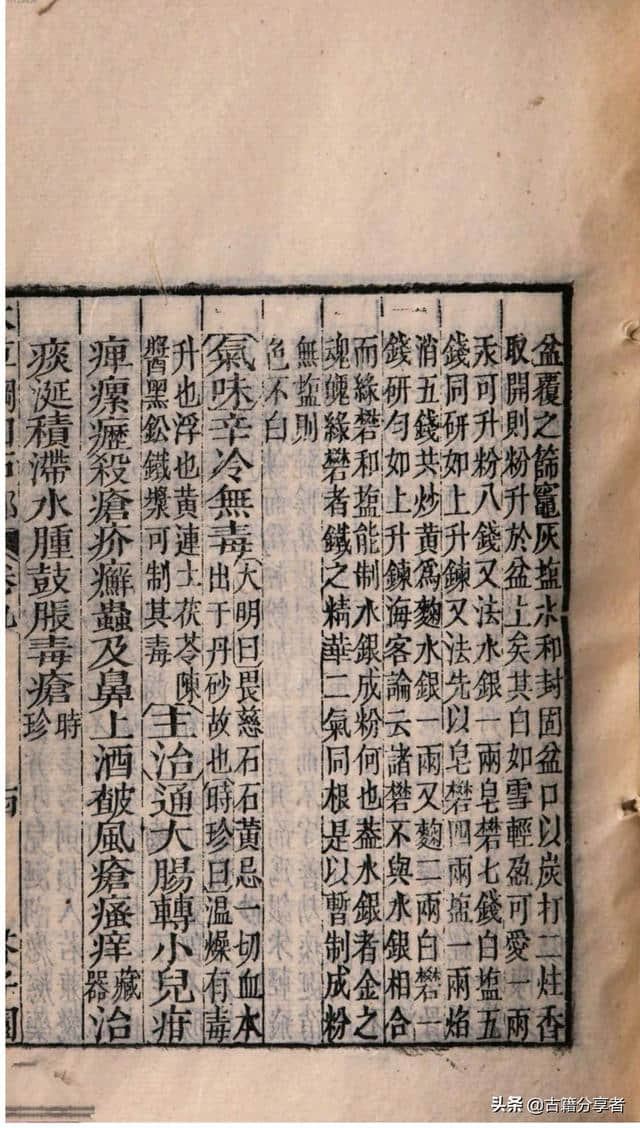 盆覆之篩竈灰塩水和封固盆口以炭打二炷香
取開則粉升於盆上矣其白如雪輕盈可愛一兩
汞可升粉八錢又法水銀一兩皂礬七錢白塩五
錢同研如上升鍊又法先以皂礬四兩塩一兩焰
消五錢共炒黃爲麴水銀一兩又麴二兩白礬一
錢研勻如上升鍊海客論云諸礬不與水銀相合
而綠礬和塩能制水銀成粉何也葢水銀者金之
魂魄綠礬者鐵之精華二氣同根是以暫制成粉
無塩則
色不白
氣味辛冷無毒
大明曰畏慈石石黃忌一切血本
出于丹砂故也時珍曰温燥有毒
升也浮也黃連土茯苓陳
醬黑鈆鐵漿可制其毒
主治通大腸轉小兒疳
痺瘰癧殺瘡疥癬蟲及鼻上酒皶風瘡瘙痒
藏
器
治
痰涎積滯水腫鼓脹毒瘡
時
珍
头条 @古籍分享者